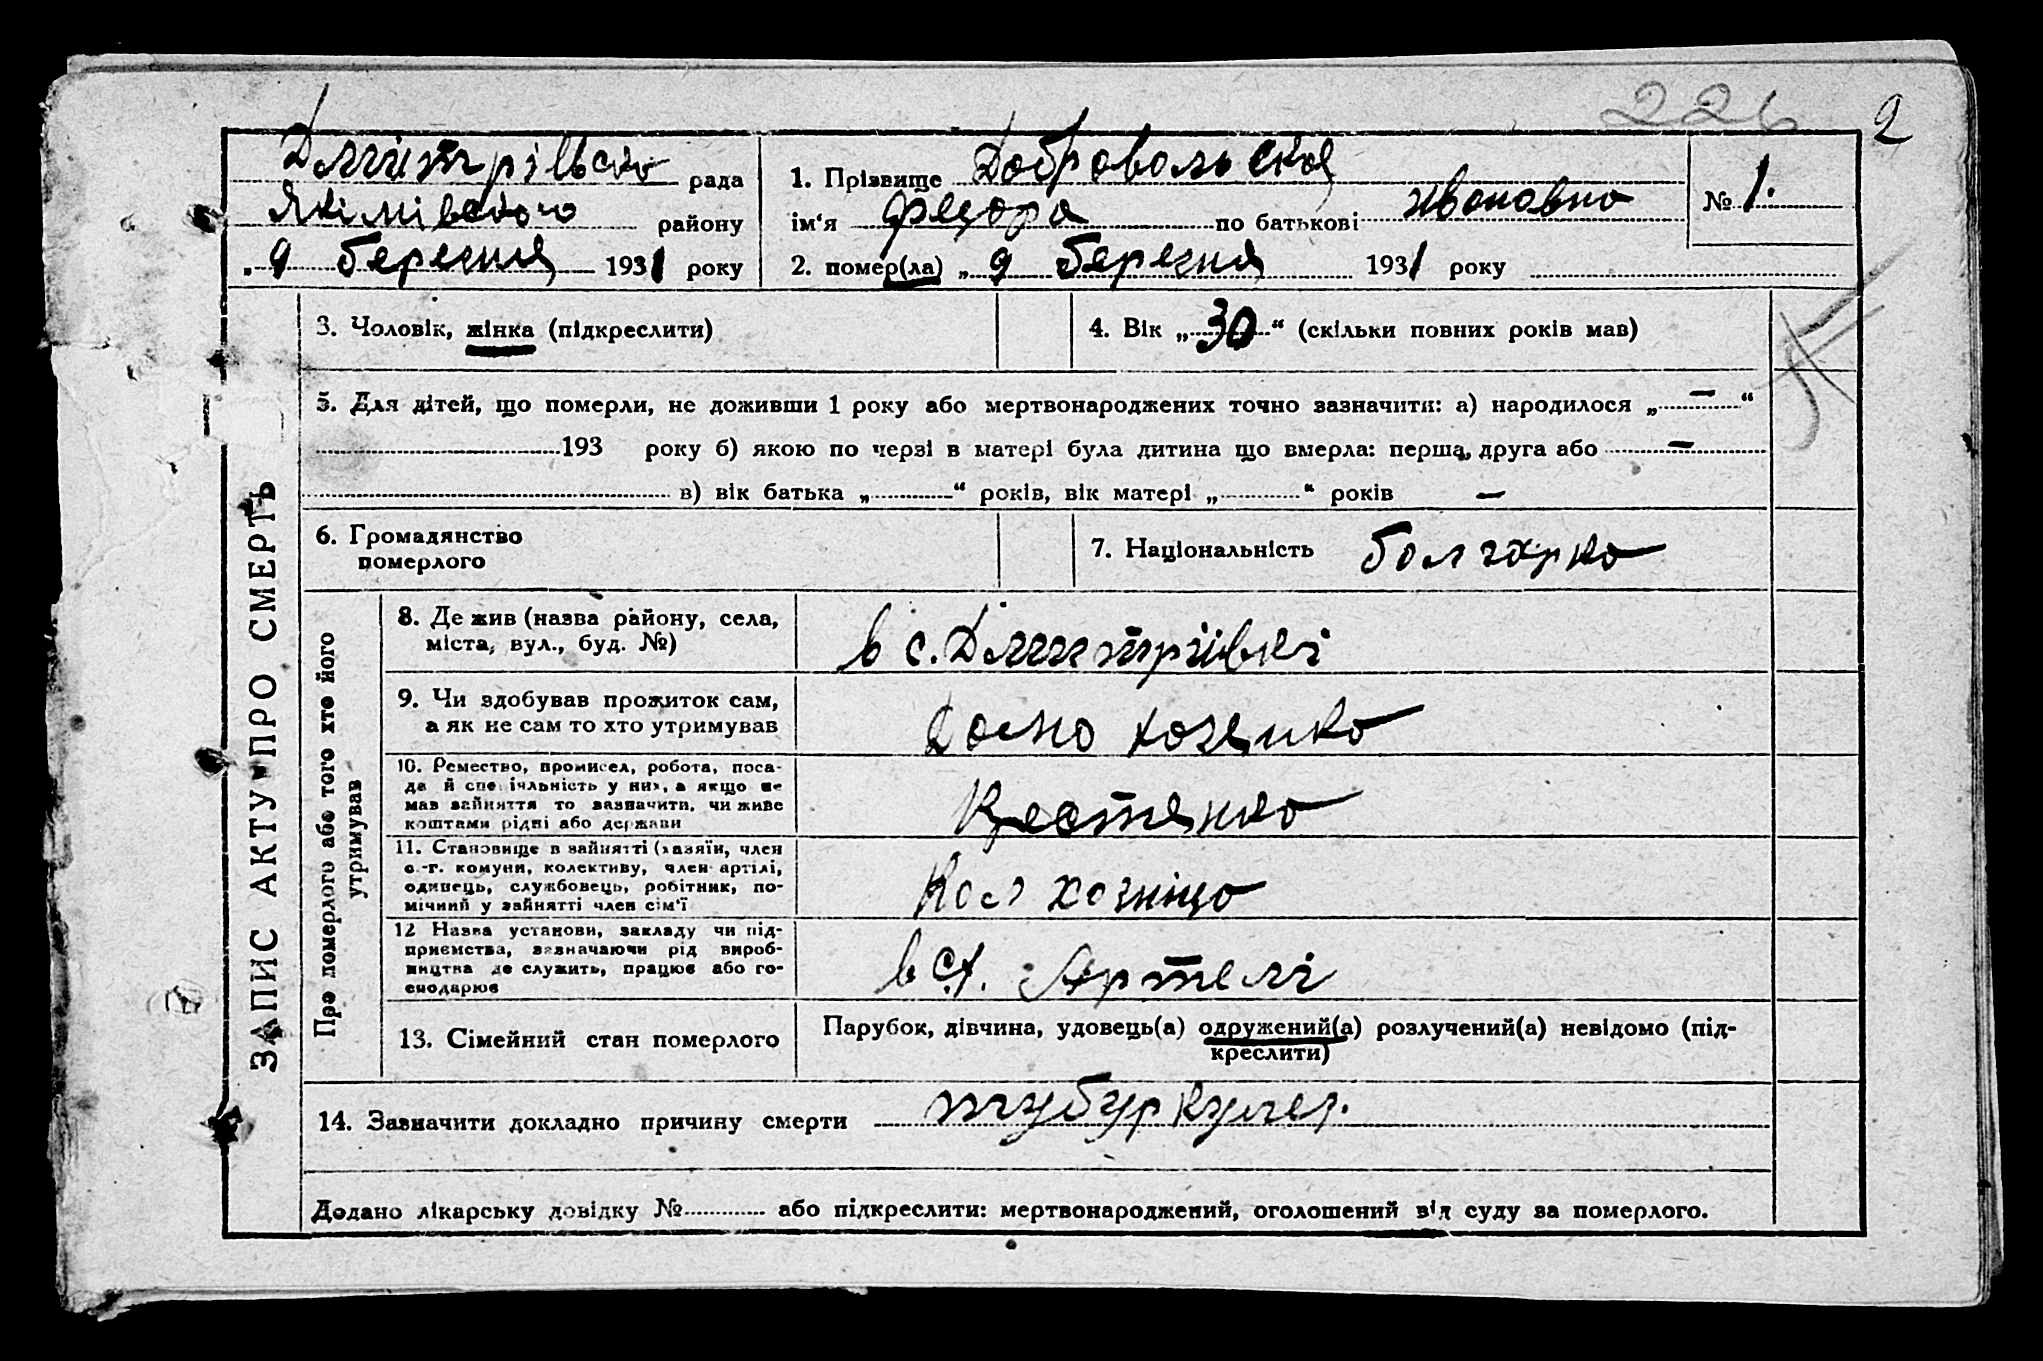 226 2
Дмитрівсько рада
Якімівсько району
„ 9 березня 1931 року
1. Прізвище Добровольская
ім'я Федора по батькові Ивоновно
2. помер(ла) „ 9 березня 1931 року
№ 1.
ЗАПИС АКТУ ПРО СМЕРТЬ
3. Чоловік, жінка (підкреслити)
4. Вік „ 30 “ (скільки повних років мав)
5. Для дітей, що померли, не доживши 1 року або мертвонароджених точно зазначити: а) народилося „ — “
193 року б) якою по черзі в матері була дитина що вмерла: перша, друга або —
в) вік батька „ “ років, вік матері „ “ років —
6. Громадянство
померлого
7. Національність болгарко
Про померлого або того хто його
утримував
8. Де жив (назва району, села,
міста, вул., буд. №)
в с. Дмитрівкі
9. Чи здобував прожиток сам,
а як не сам то хто утримував
Домо хозяйко
10. Ремество, промисел, робота, поса-
да й спеціяльність у них, а якщо не
мав зайняття то зазначити, чи живе
коштами рідні або держави
11. Становище в зайнятті (хазяїн, член
с.-г. комуни, колективу, член артілі,
одинець, службовець, робітник, по-
мічний у зайнятті член сім'ї
Колхозніцо
12 Назва установи, закладу чи під-
приємства, зазначаючи рід вироб-
ництва де служить, працює або го-
сподарює
в с. Артелі
13. Сімейний стан померлого
Парубок, дівчина, удовець(а) одружений(а) розлучений(а) невідомо (під-
креслити)
14. Зазначити докладно причину смерти тубуркулез.
Додано лікарську довідку № або підкреслити: мертвонароджений, оголошений від суду за померлого.